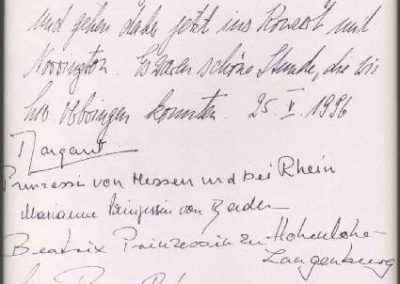 und gehen daher jetzt ins Konzert mit
Norrington. Es waren schöne Stunde, die wir
hier verbringen konnten. 25. V. 1996
Margaret
Prinzessin von Hessen und bei Rhein
Marianne Prinzessin von Baden
Beatrix Prinzessin zu Hohenlohe-
Langenburg